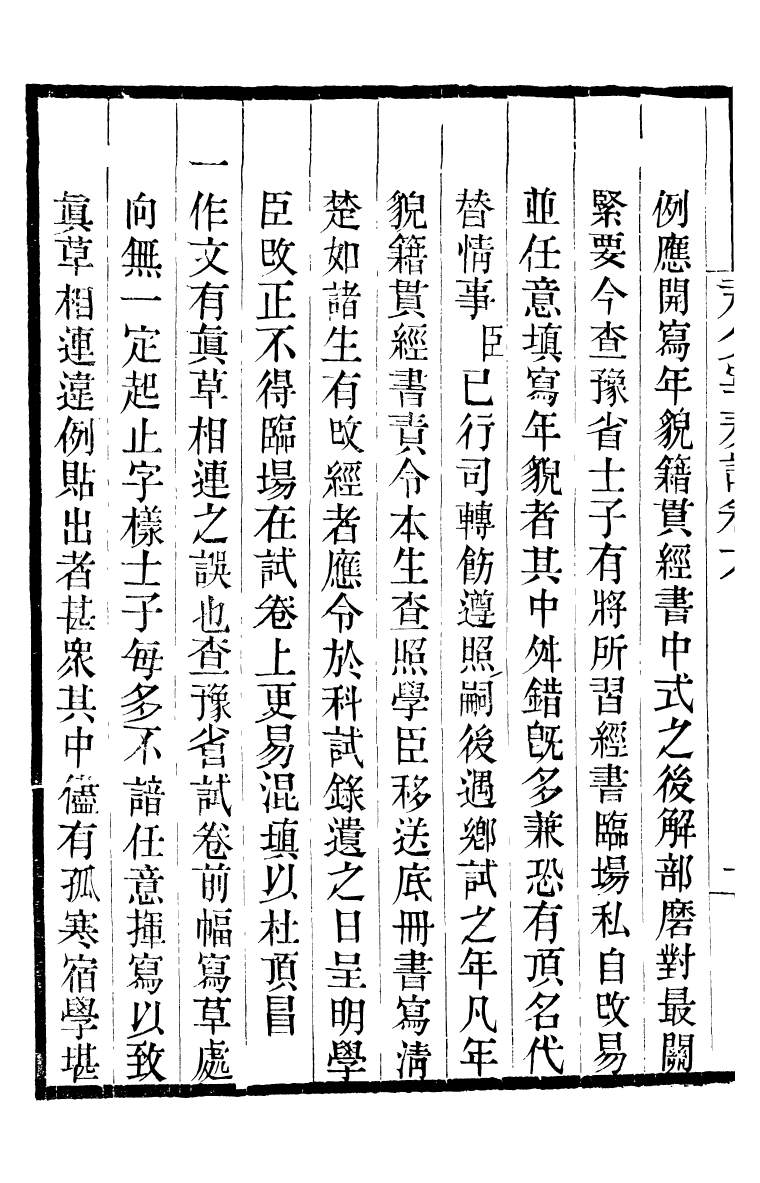 例應開寫年貌籍貫經書中式之後解部磨對最關
緊要今查豫省士子有將所習經書臨場私自改易
並任意填寫年貌者其中舛錯旣多兼恐有頂名代
替情事臣已行司轉飭遵照嗣後遇鄕試之年凡年
貌籍貫經書責令本生查照學臣移送底冊書寫清
楚如諸生有改經者應令於科試錄遺之日呈明學
臣改正不得臨場在試卷上更易混填以杜頂冒
一作文有眞草相連之誤也查豫省試卷前幅寫草處
向無一定起止字樣士子每多不諳任意揮寫以致
眞草相連違例貼出者甚衆其中儘有孤寒宿學堪